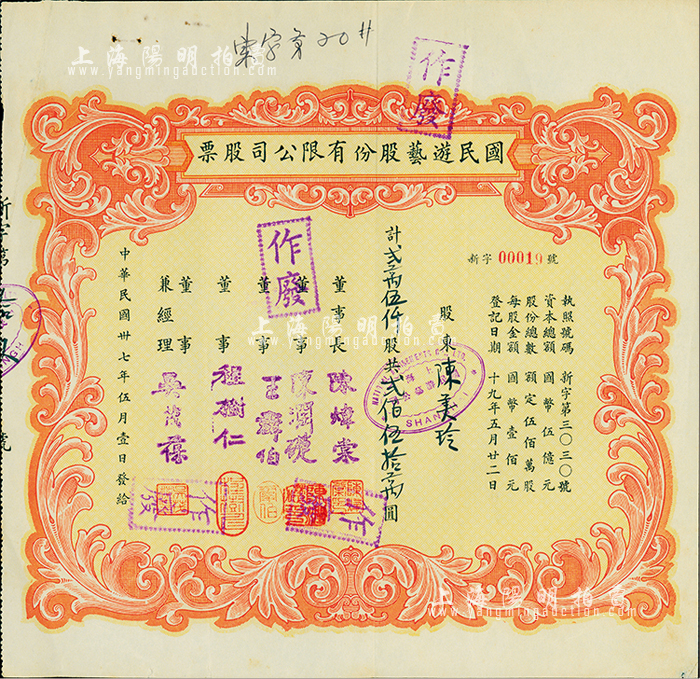 上海陽明拍賣
www.yangmingauction.com
作廢
國民遊藝股份有限公司股票
新字 00019 號
執照號碼 新字第三〇三〇號
資本總額 國幣伍億元
股份總數 額定伍佰萬股
每股金額 國幣壹佰元
登記日期 十九年五月廿二日
股東 陳美玲
計 弍萬伍仟 股共 弍佰伍拾萬 圓
SHANGHAI
董事長 陳煒棠
董事
作廢
董事
董事 程樹仁
董事
兼經理
中華民國卅七年伍月壹日發給
作廢
作廢
上海陽明拍賣
www.yangmingauction.com
上海陽明拍賣
www.yangmingauction.com
新字第
號